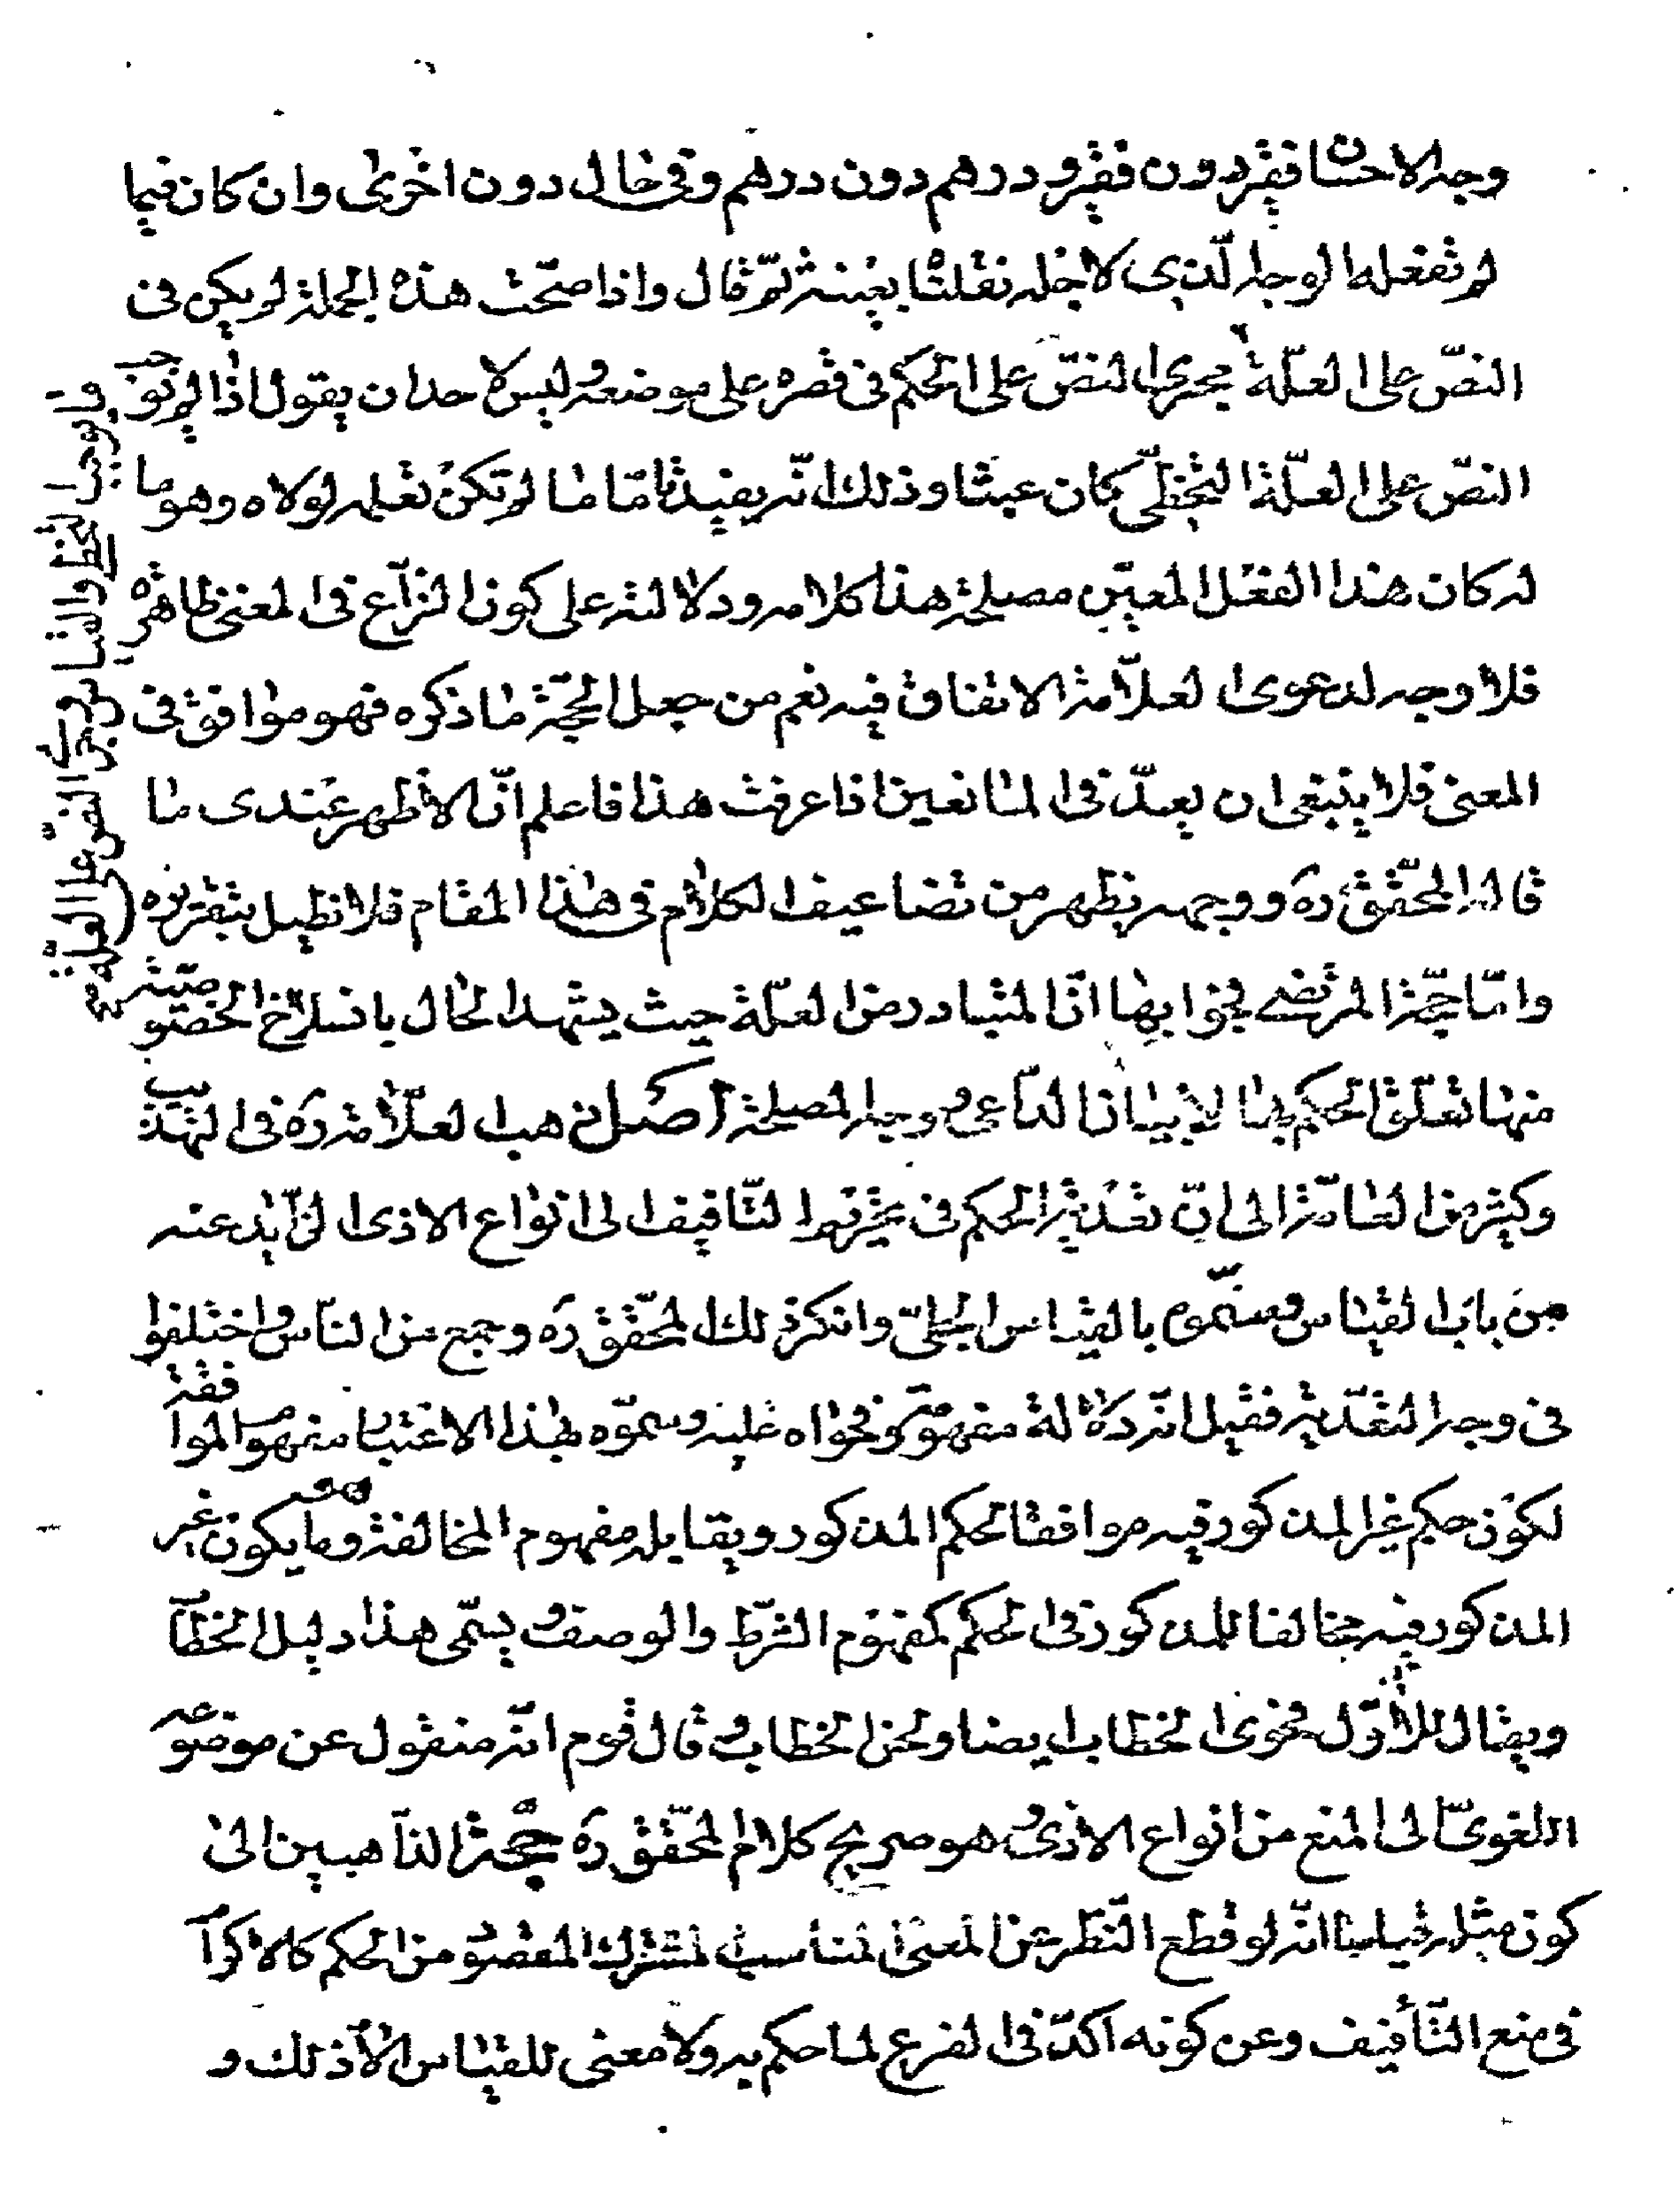 وجه الاحسان فقير دون فقير ودرهم دون درهم وفي حال دون اخرى وان كان فيما
لم نفعله الوجه الذي لاجله فعلنا بعينه ثم قال واذا صحت هذه الجملة لم يكن في
النص على العلة ما يجرى النص على الحكم في قصره على موضعه وليس لاحد ان يقول اذا لم توجب
النص على العلة التخطي كان عبثا وذلك انه يفيدنا ما لم نكن نعلمه لولاه وهو ما
له كان هذا الفعل المعين مصلحة هذا كلامه ودلالته على كون النزاع في المعنى ظاهرة
فلا وجه لدعوى العلامة الاتفاق فيه نعم من جعل الحجة ما ذكره فهو موافق في
المعنى فلا ينبغي ان يعد في المانعين اذا عرفت هذا فاعلم ان الاظهر عندى ما
قاله المحقق ره ووجهه يظهر من تضاعيف الكلام في هذا المقام فلا نطيل بتقريره
واما حجة المرتضى فجوابها ان المتبادر من العلة حيث يشهد الحال بانسلاخ الخصوصية
منها تعلق الحكم بها لا بيان الداعى ووجه المصلحة اصل ذهب العلامة ره في التهذيب
وكثير من العامة الى ان تعدية الحكم في تحريم التأفيف الى انواع الاذى الزايد عنه
من باب القياس وسموه بالقياس الجلى وانكر ذلك المحقق ره وجمع من الناس واختلفوا
في وجه التعدية فقيل انه دلالة مفهومه وفحواه عليه وسموه بهذا الاعتبار مفهوم الموافقة
لكون حكم غير المذكور فيه موافقا لحكم المذكور ويقابله مفهوم المخالفة وهو ما يكون غير
المذكور فيه مخالفا للمذكور في الحكم كمفهوم الشرط والوصف ويسمى هذا دليل الخطاب
ويقال للاول فحوى الخطاب ايضا ولحن الخطاب وقال قوم انه منقول عن موضوعه
اللغوى الى المنع من انواع الاذى وهو صريح كلام المحقق ره حجة الذاهبين الى
كون مثله قياسا انه لو قطع النظر عن المعنى المناسب المشترك المقصود من الحكم كالاكرام
في منع التأفيف وعن كونه اكد في الفرع لما حكم به ولا معنى للقياس الا ذلك و
فايوجب التخطى والقياس لم يجز النص على العلة